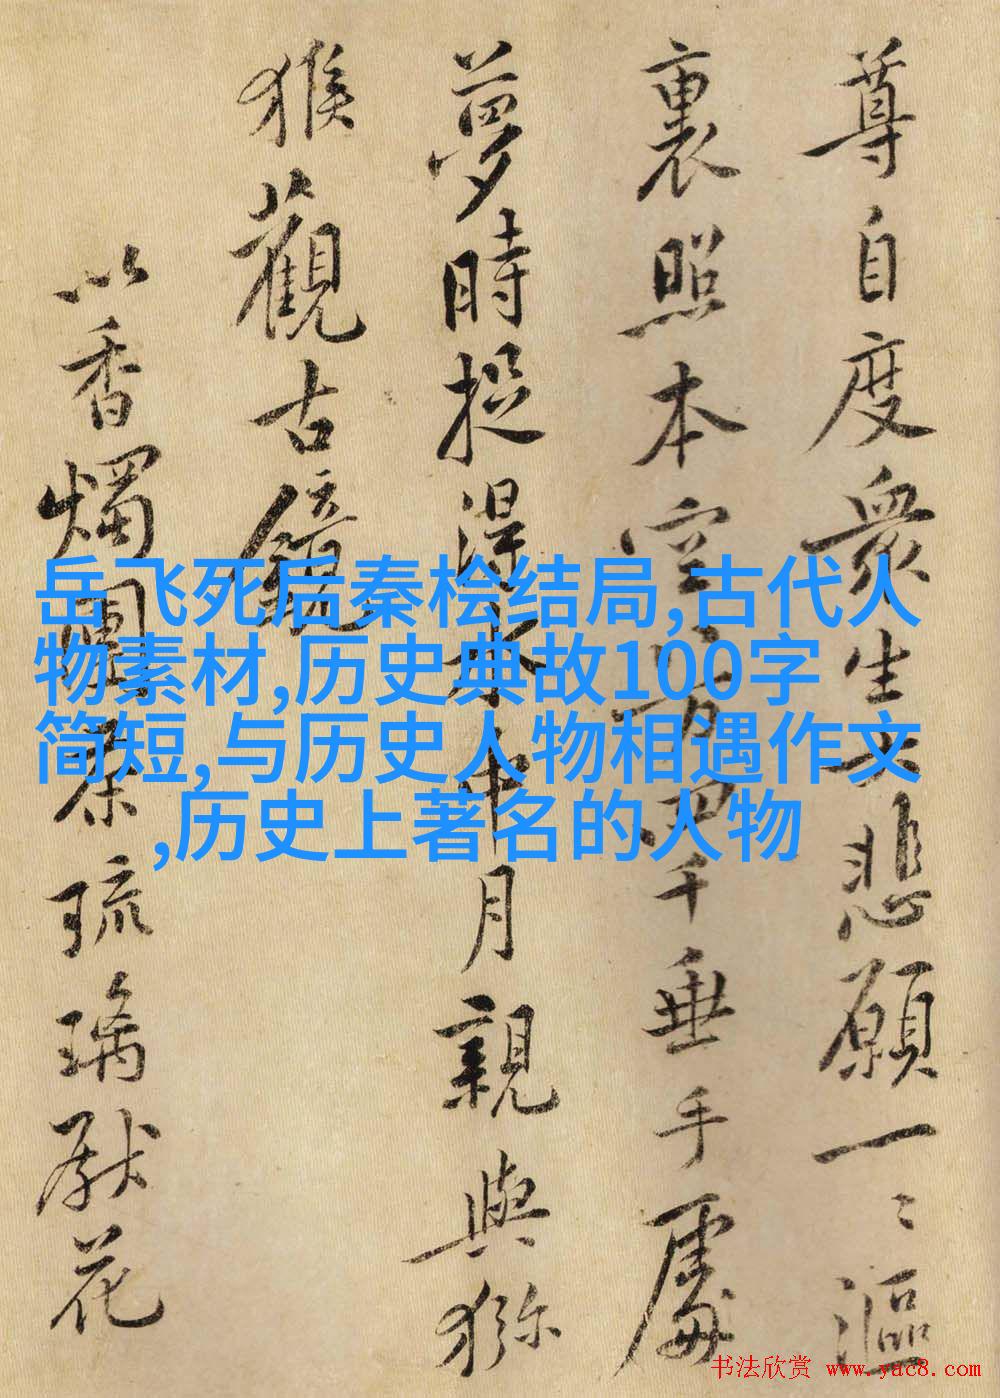 尊自度衆生大悲願一〻漚
裏照本空八万四千垂手處
夢時捉得水中月親與猕
猴觀古鏡
以香燭團茶琉璃献花
岳飞死后秦桧结局,古代人
物素材,历史典故100字
简短,与历史人物相遇作文
,历史上著名的人物
书法欣赏 www.yac8.com